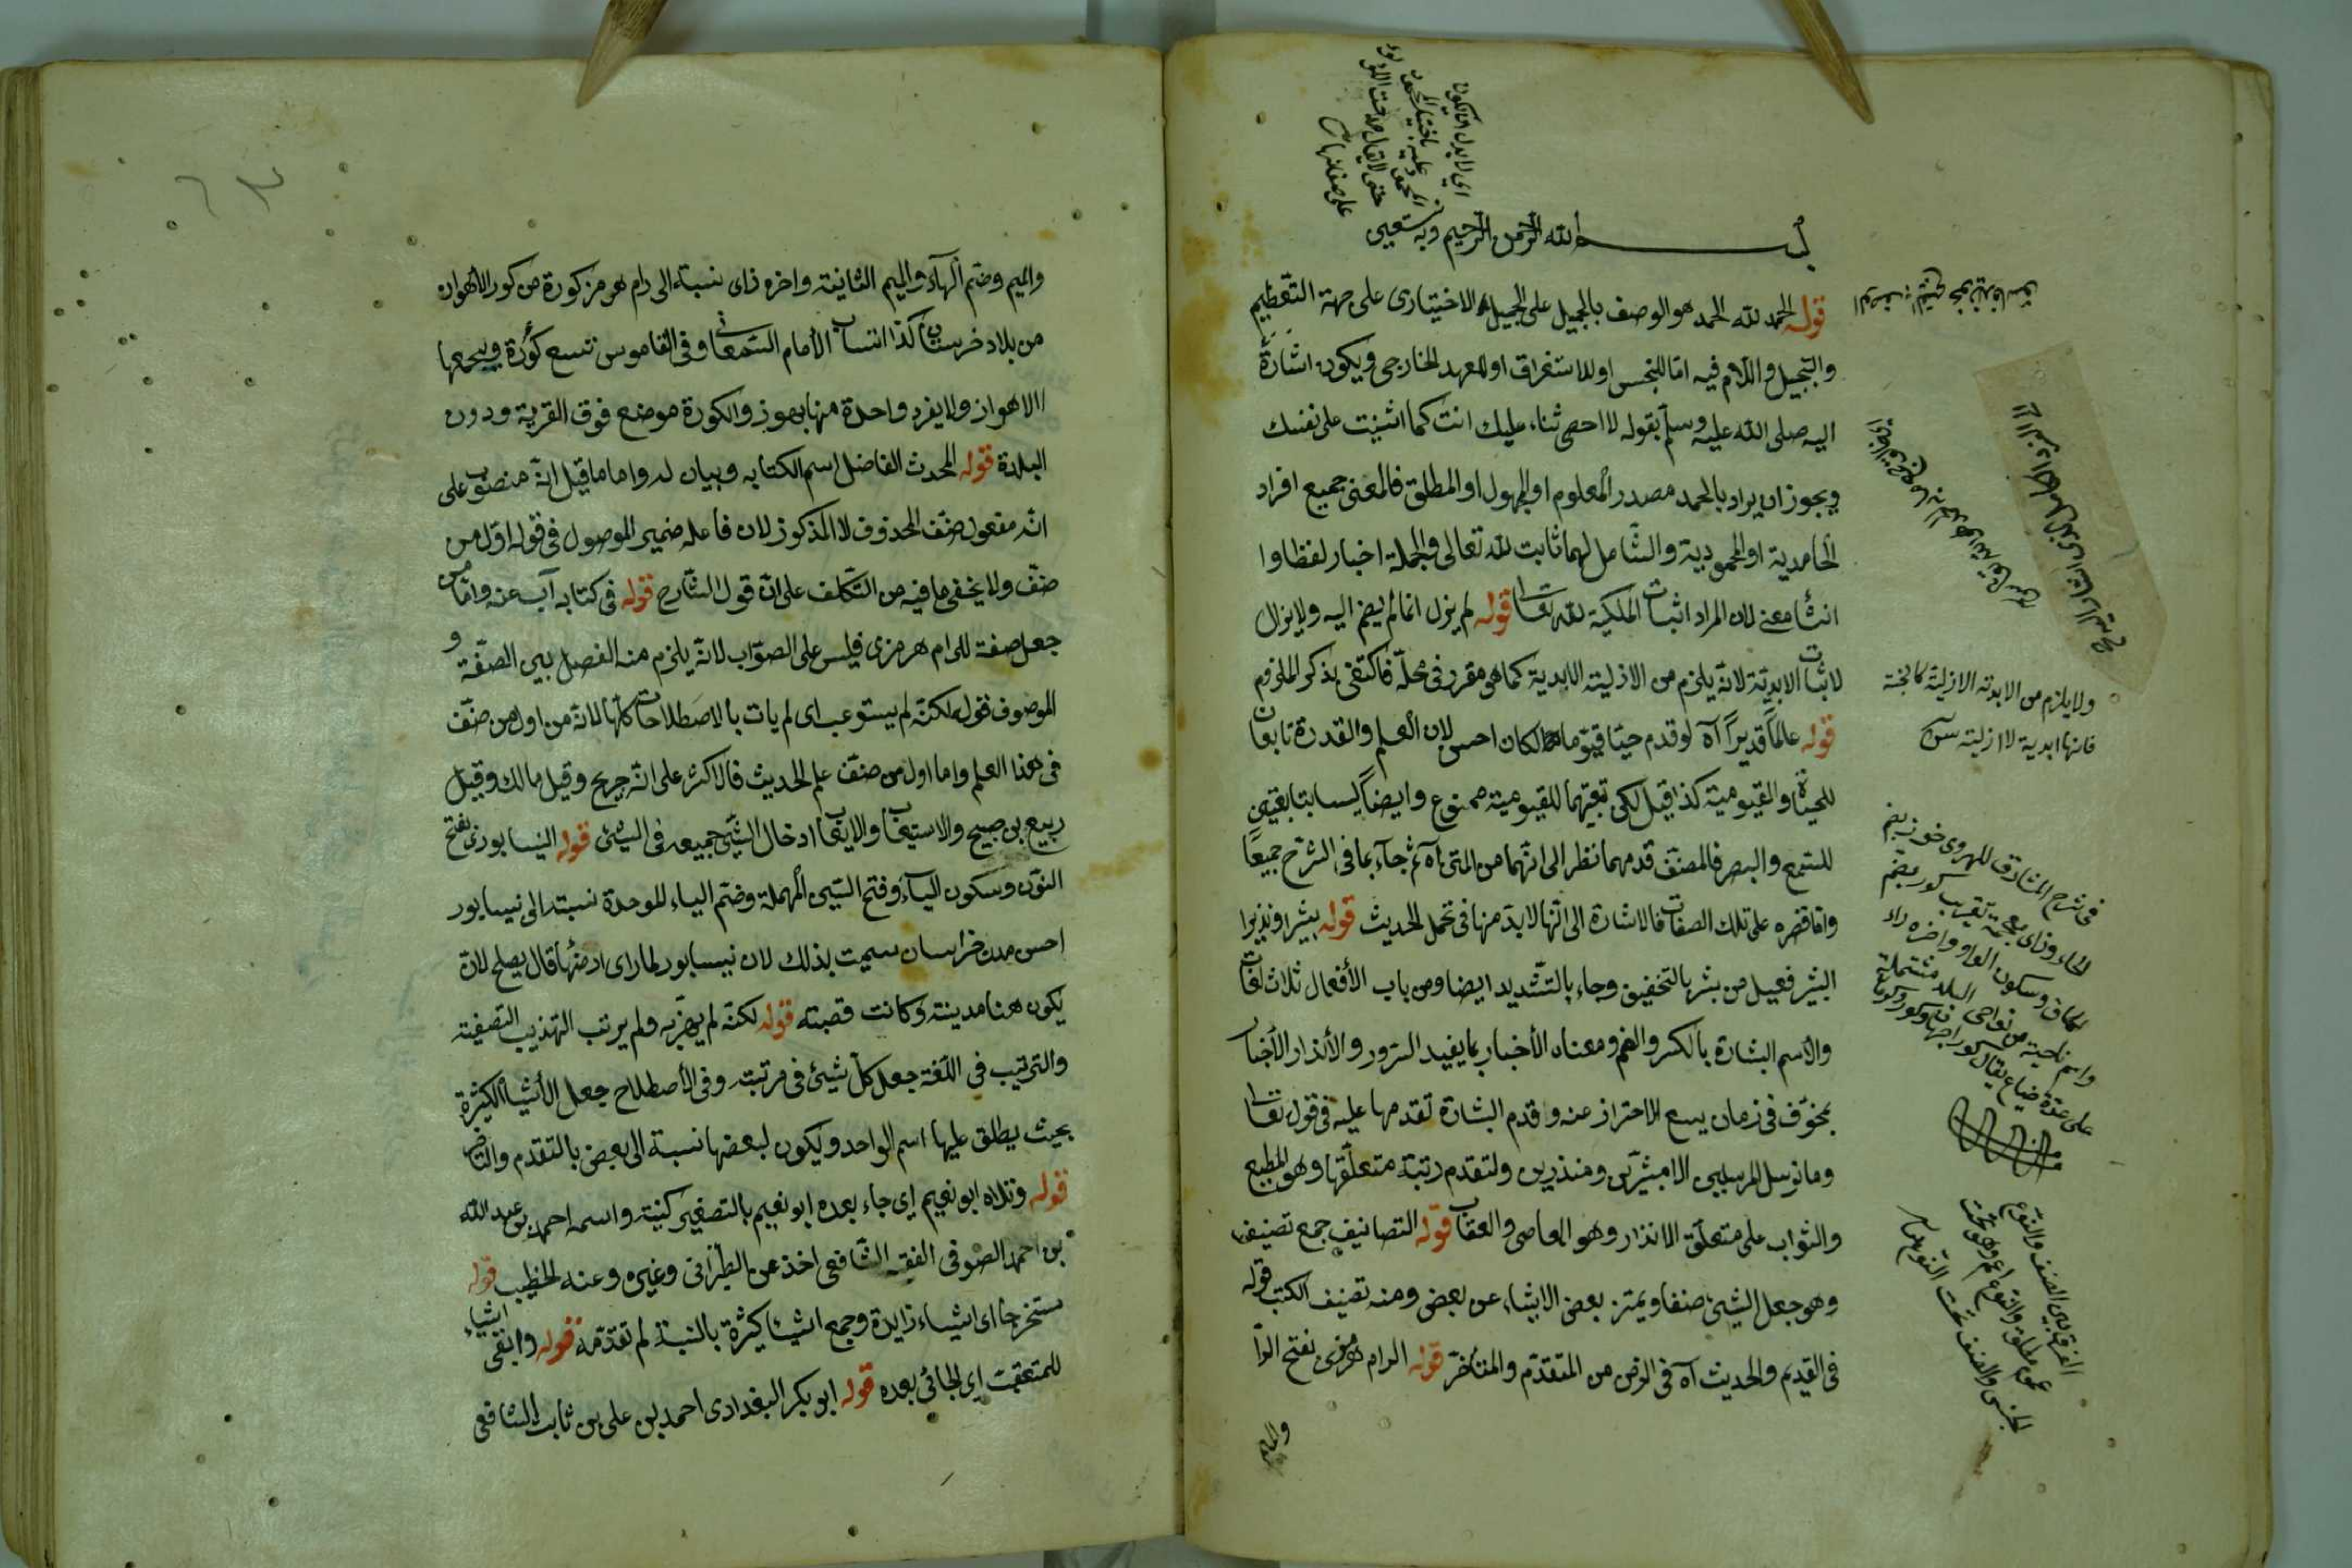 بسم الله الرحمن الرحيم وبه نستعين
قوله الحمد لله الحمد هو الوصف بالجميل على الجميل الاختيارى على جهة التعظيم
والتبجيل واللام فيه اما للجنس او للاستغراق او للعهد الخارجى ويكون اشارة
اليه صلى الله عليه وسلم بقوله لا احصى ثناء عليك انت كما اثنيت على نفسك
ويجوز ان يراد بالحمد مصدر المعلوم او المجهول او المطلق فالمعنى جميع افراد
الحامدية او المحمودية والشامل لهما ثابت لله تعالى والجملة اخبار لفظا وا
انشا معنى لان المراد اثبات الملكية لله تعا قوله لم يزل انما لم يضم اليه ولا يزال
لاثبات الابدية لانه يلزم من الازلية الابدية كما هو مقرر فى محله فاكتفى بذكر الملزوم
قوله عالما قديرا آه لو قدم حيا قيوما لكان احسن لان العلم والقدرة تابعان
للحياة والقيومية كذا قيل لكن تبعيتهما للقيومية ممنوع وايضا ليسا بتابعين
للسمع والبصر فالمصنف قدمهما نظر الى انهما من المتن آه ثم جاء بما فى الشرح جميعا
واما قصره على تلك الصفات فالاشارة الى انها لابد منها فى تحمل الحديث قوله بشيرا ونذيرا
البشير فعيل من بشر بالتخفيف وجاء بالتشديد ايضا ومن باب الأفعال ثلاث لغات
والأسم البشارة بالكسر والضم ومعناه الأخبار بما يفيد السرور والأنذار الأخبار
بمخوف فى زمان يسع الاحتراز عنه وقدم البشارة تقدمها عليه فى قوله تعا
وما نرسل المرسلين الا مبشرين ومنذرين ولتقدم رتبة متعلقها وهو المطيع
والثواب على متعلق الانذار وهو العاصى والعقاب قوله التصانيف جمع تصنيف
وهو جعل الشيئ صنفا ويتميز بعض الاشياء عن بعض ومنه تصنيف الكتب قوله
فى القديم والحديث آه فى الزمن من المتقدم والمتأخر قوله الرام هرمزى بفتح الرا
والميم
ولا يلزم من الابدية الازلية كالجنة
فانها ابدية لا ازلية
فى شرح المشارق للهروى خوز بضم
الخاء وزاى معجمة تقريب كور بضم
الكاف وسكون الواو واخره راء
واسم ناحية من نواحى البلد مشتملة
على عدة ضياع يقال
الفرق بين الصنف والنوع
عموم مطلق والنوع اعم وهو تحت
الجنس والصنف تحت النوع
والميم وضم الهاء والميم الثانية واخره زاى نسبة الى رام هرمز كورة من كور الأهواز
من بلاد خرستان كذا انساب الأمام السمعانى وفى القاموس تسع كورة ويجمعها
الاهواز ولا يفرد واحدة منها بهوز والكورة موضع فوق القرية ودون
البلدة قوله المحدث الفاضل اسم الكتابه وبيان له واما ما قيل انه منصوب على
انه مفعول صنف المحذوف لا المذكور لان فاعله ضمير الموصول فى قوله اول من
صنف ولا يخفى ما فيه من التكلف على ان قول الشارح قوله فى كتابه آب عنه واما من
جعل صفة للرام هرمزى فليس على الصواب لانه يلزم منه الفصل بين الصفة و
الموصوف قوله لكنه لم يستوعب اى لم يات بالاصطلاحات كلها لانه من اول من صنف
فى هذا العلم واما اول من صنف علم الحديث فالاكثر على انه جريح وقيل مالك وقيل
ربيع بن صبيح والاستيعاب والايعاب ادخال الشيئ جميعه فى الشيئ قوله النيسابورى بفتح
النون وسكون الياء وفتح السين المهملة وضم الباء الموحدة نسبته الى نيسابور
احسن مدن خراسان سميت بذلك لان نيسابور لما راى ارضها قال يصلح لان
يكون هنا مدينة وكانت قصبته قوله لكنه لم يهذبه ولم يرتب التهذيب التصفية
والترتيب فى اللغة جعل كل شيئ فى مرتبته وفى الأصطلاح جعل الأشياء الكثيرة
بحيث يطلق عليها اسم الواحد ويكون لبعضها نسبة الى بعض بالتقدم والتأخر
قوله وتلاه ابو نعيم اى جاء بعده ابو نعيم بالتصغير كنيته واسمه احمد بن عبد الله
بن احمد الصوفى الفقيه الشافعى اخذ عن الطبرانى وغيره وعنه الخطيب قوله
مستخرجا اى اشياء زايدة وجمع اشياء كثيرة بالنسبة لم تقدمه قوله وابقى اشياء
للمتعقب اى الجائى بعده قوله ابو بكر البغدادى احمد بن على بن ثابت الشافعى